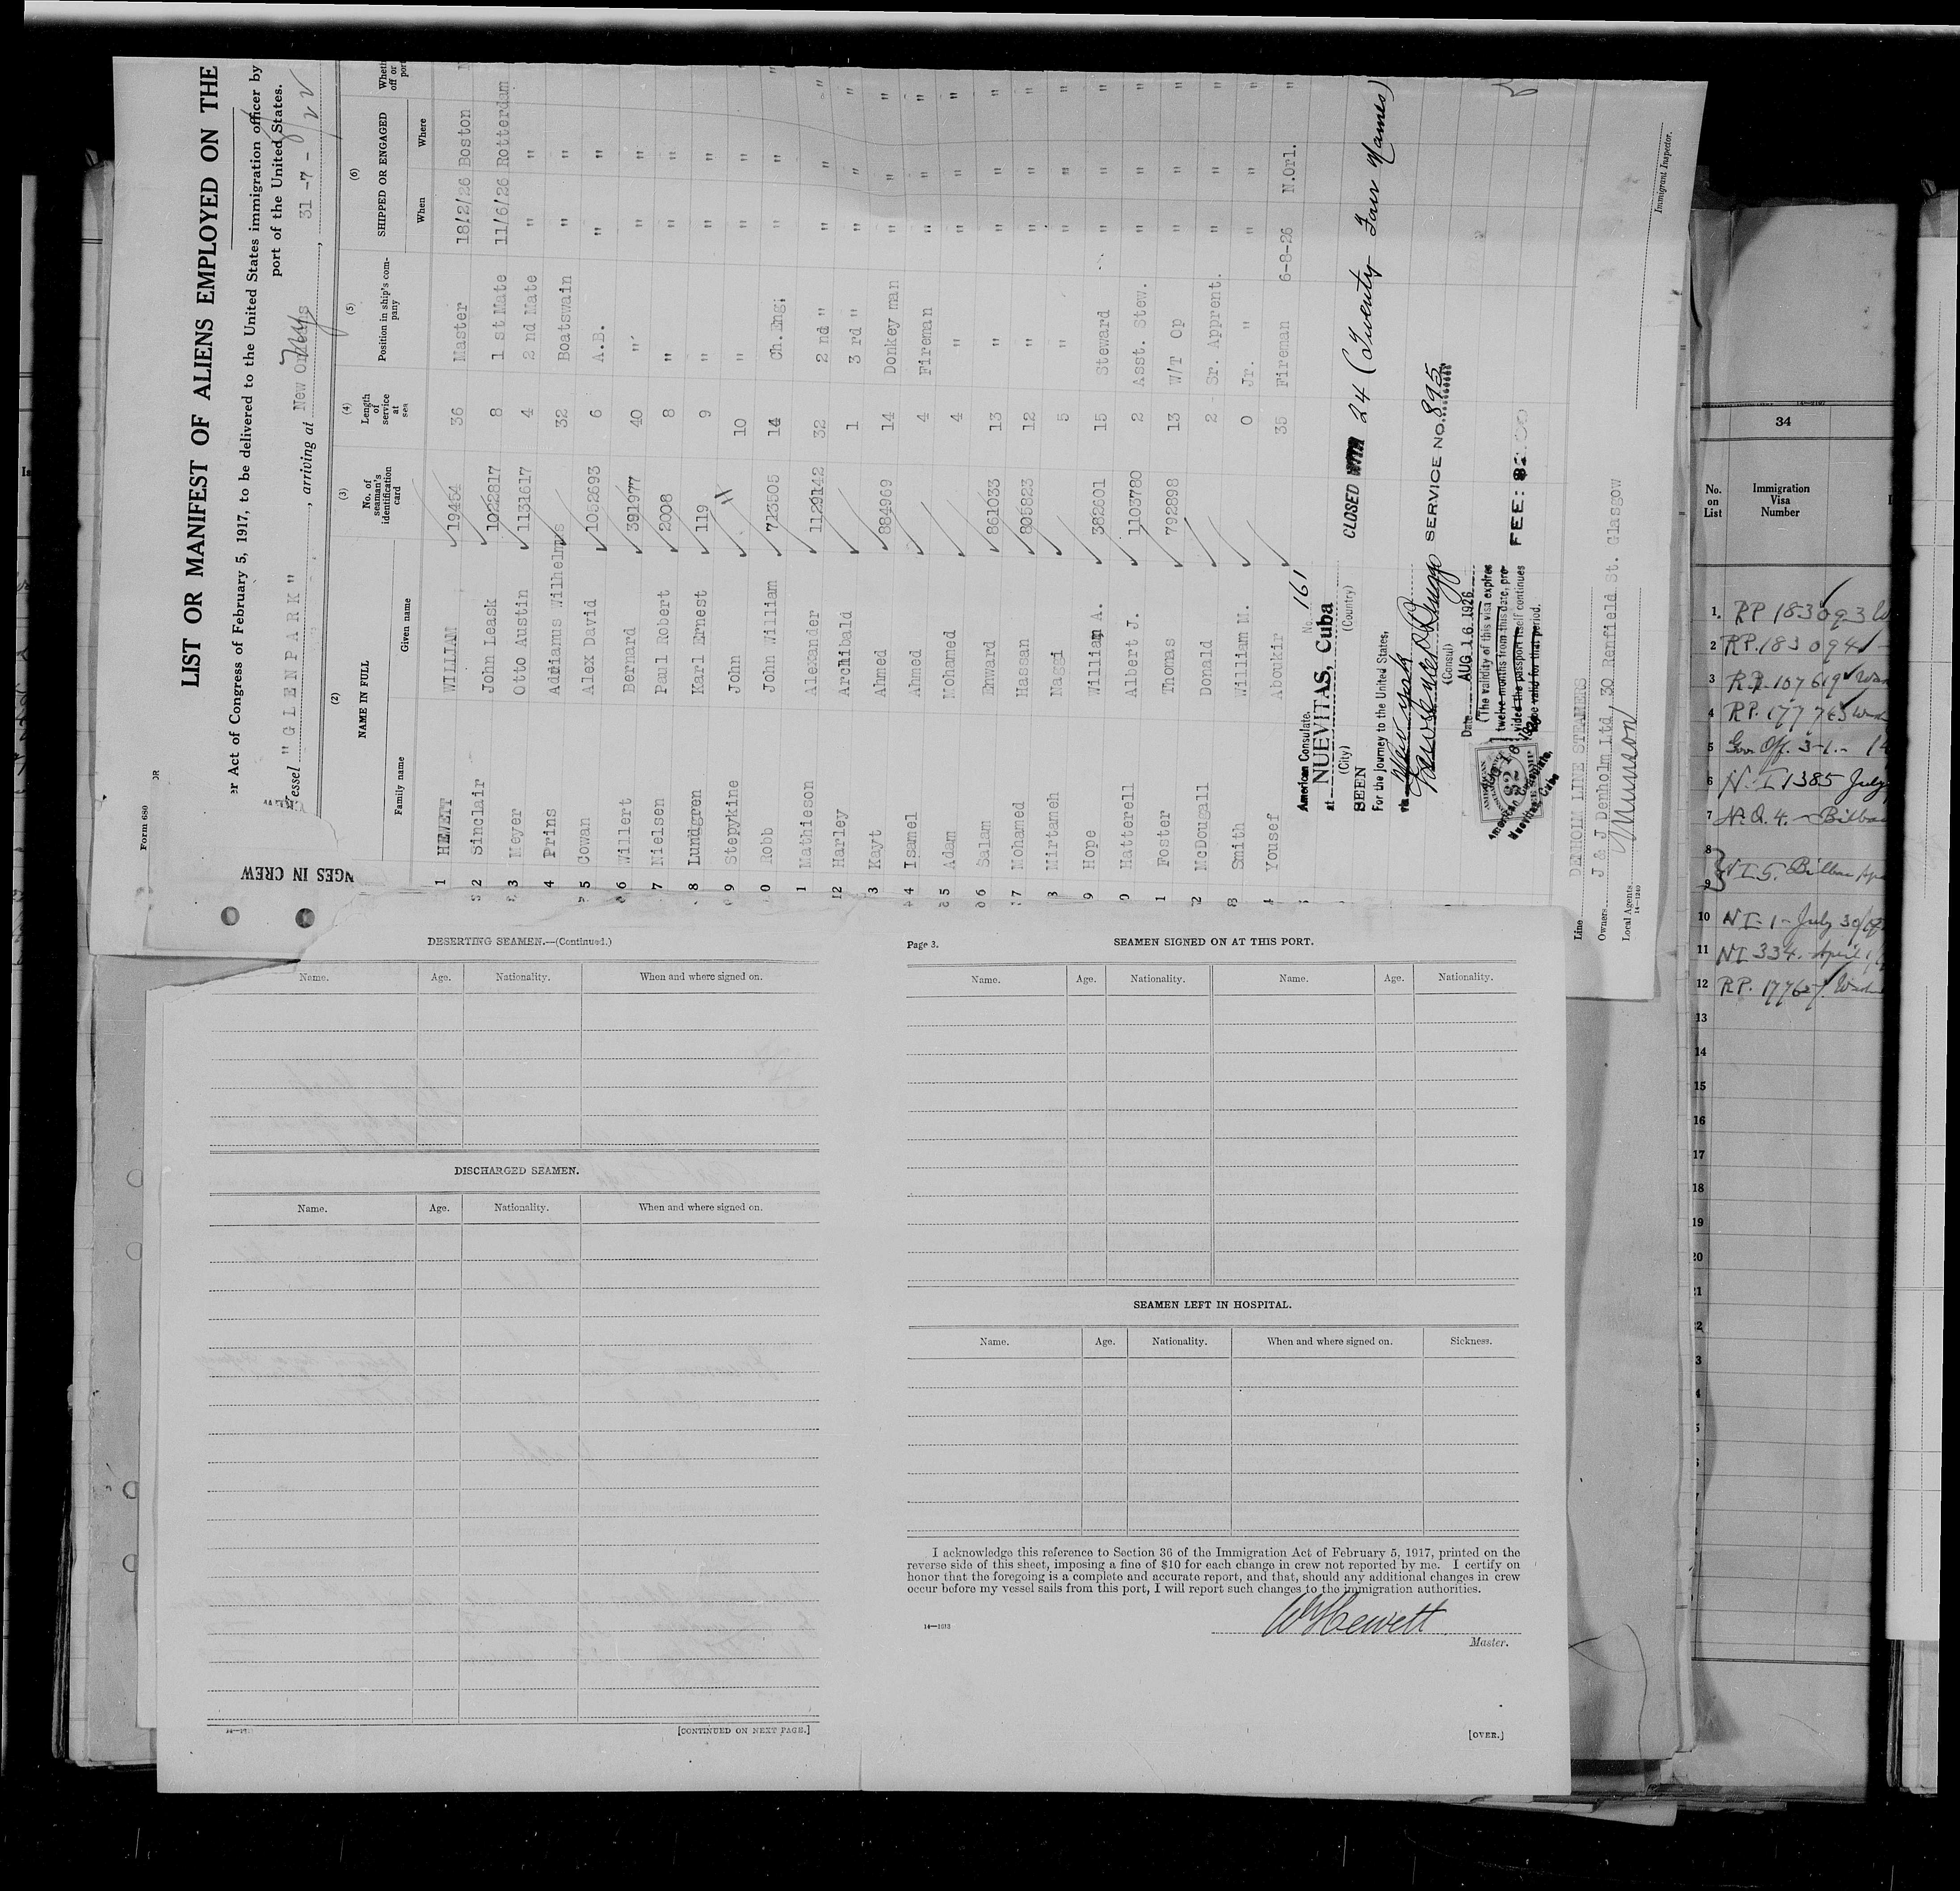 Form 680
LIST OR MANIFEST OF ALIENS EMPLOYED ON THE
er Act of Congress of February 5, 1917, to be delivered to the United States immigration officer by
port of the United States.
Vessel "GLENPARK", arriving at New Orleans 31-7-
(2) (3) (4) (5) (6)
NAME IN FULL No. of seaman's identification card Length of service at sea Position in ship's company SHIPPED OR ENGAGED
Family name Given name When Where
NGES IN CREW
1 HEWETT WILLIAM 19454 36 Master 18/2/26 Boston
2 Sinclair John Leask 1022817 8 1 st Mate 11/6/26 Rotterdam
3 Meyer Otto Austin 1131617 4 2 nd Mate " "
4 Prins Adrianus Wilhelmus 32 Boatswain " "
5 Cowan Alex David 1052693 6 A.B. " "
6 Willert Bernard 391977 40 " " "
7 Nielsen Paul Robert 2008 8 " " "
8 Lundgren Karl Ernest 119 9 " " "
9 Stepykine John " 10 " " "
0 Robb John William 713505 14 Ch.Eng: " "
1 Mathieson Alexander 1129142 32 2 nd " " "
12 Harley Archibald 1 3 rd " " "
3 Kayt Ahmed 884969 14 Donkey man " "
4 Isamel Ahmed 4 Fireman " "
5 Adam Mohamed 4 " " "
6 Salam Enward 861033 13 " " "
7 Mohamed Hassan 805823 12 " " "
8 Mirtaneh Naggi 5 " " "
9 Hope William A. 382601 15 Steward " "
0 Hatterell Albert J. 1103780 2 Asst. Stew. " "
1 Foster Thomas 792898 13 W/T Op " "
2 McDougall Donald 2 Sr. Apprent. " "
3 Smith William M. 0 Jr. " " "
4 Yousef Aboukir 35 Fireman 6-8-26 N.Orl. "
No. 161
American Consulate.
at NUEVITAS, Cuba
(City) (Country)
CLOSED WITH 24 (Twenty Four Names)
SEEN
For the journey to the United States,
via New York
SERVICE NO. 895
(Consul)
Date AUG 16 1926
(The validity of this visa expires
twelve months from this date, pro-
vided the passport itself continues
to be valid for that period.
FEE: $2.00
American Consulate,
Nuevitas, Cuba
Line DENHOLM LINE STEAMERS
Owners J & J Denholm Ltd, 30 Renfield St. Glasgow
Local Agents Munson
14-1240
Immigrant Inspector.
DESERTING SEAMEN.—(Continued.)
Name. Age. Nationality. When and where signed on.
DISCHARGED SEAMEN.
Name. Age. Nationality. When and where signed on.
[CONTINUED ON NEXT PAGE.]
Page 3. SEAMEN SIGNED ON AT THIS PORT.
Name. Age. Nationality. Name. Age. Nationality.
SEAMEN LEFT IN HOSPITAL.
Name. Age. Nationality. When and where signed on. Sickness.
I acknowledge this reference to Section 36 of the Immigration Act of February 5, 1917, printed on the
reverse side of this sheet, imposing a fine of $10 for each change in crew not reported by me. I certify on
honor that the foregoing is a complete and accurate report, and that, should any additional changes in crew
occur before my vessel sails from this port, I will report such changes to the immigration authorities.
W Hewett
14—1613
Master.
[OVER.]
34
No. on List Immigration Visa Number
1. RP 183093
2 RP. 183094
3 RP. 107619
4 RP. 177763
5 Gov Off. 3-1.-
6 N.I 1385 July
7 N.Q. 4. - Bilbao
8
9 N I 5. Bilbao
10 NI-1- July 30
11 NI 334. April
12 RP. 177627
13
14
15
16
17
18
19
20
21